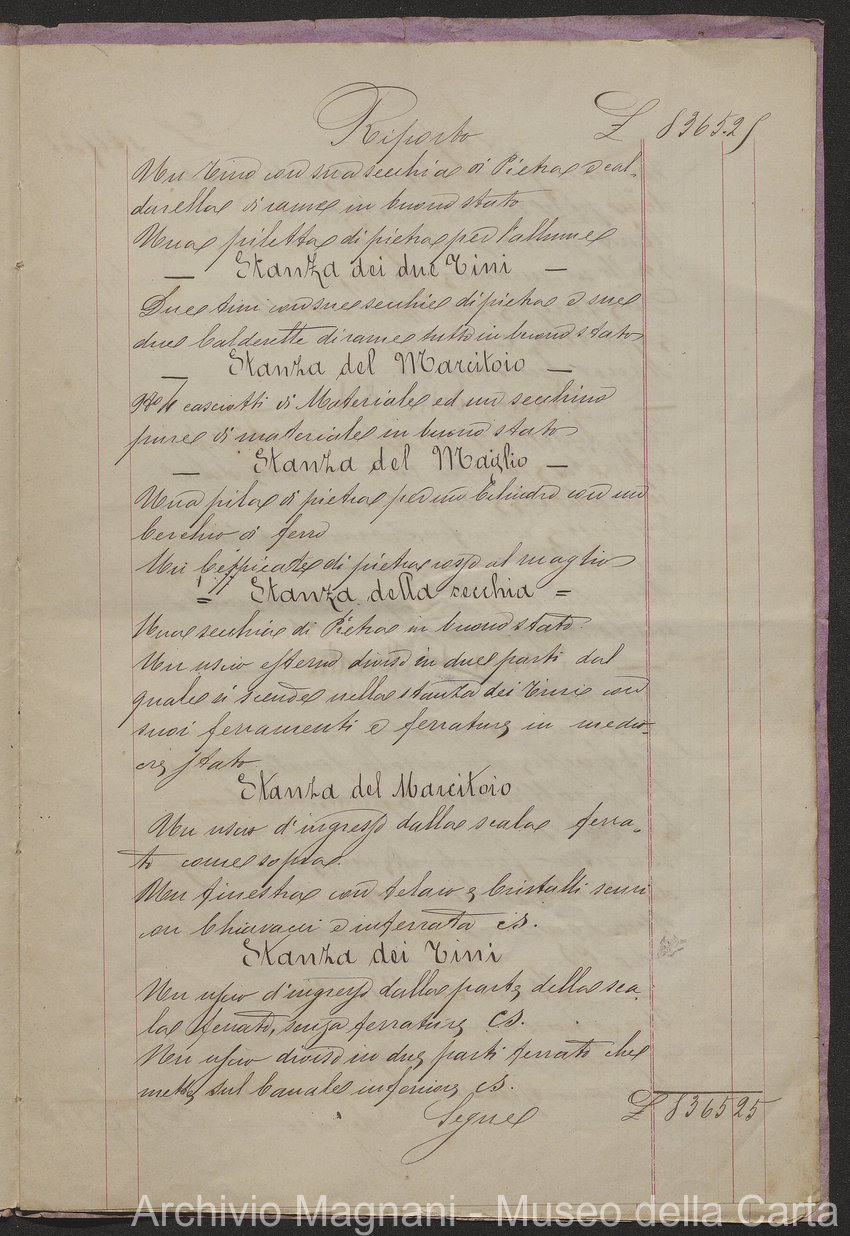 Riporto £ 8365.25
Un Tino con sua secchia di Pietra e cal-
darella di rame in buono stato
Una piletta di pietra per l'allume
— Stanza dei due Tini —
Due tini con sue secchie di pietra e sue
due Calderette di rame tutto in buono stato
— Stanza del Marcitoio —
4 casciotti di Materiale ed un secchino
pure di materiale in buono stato
— Stanza del Maglio —
Una pila di pietra per un Cilindro con un
Cerchio di ferro
Un di pietra al maglio
= Stanza della secchia =
Una secchia di Pietra in buono stato.
Un uscio esterno diviso in due parti dal
quale si scende nella stanza dei Tini con
suoi ferramenti e ferrature in medio-
cre stato
Stanza del Marcitoio
Un uscio d'ingresso dalla scala ferra-
to come sopra.
Un finestra con telaio e Cristalli scuri
con Chiavacci e inferrata cs.
Stanza dei Tini
Un uscio d'ingresso dalla parte della sca-
la ferrato, senza ferrature cs.
Un uscio diviso in due parti ferrato che
mette sul Canale inferiore cs.
Segue £ 836525
Archivio Magnani - Museo della Carta